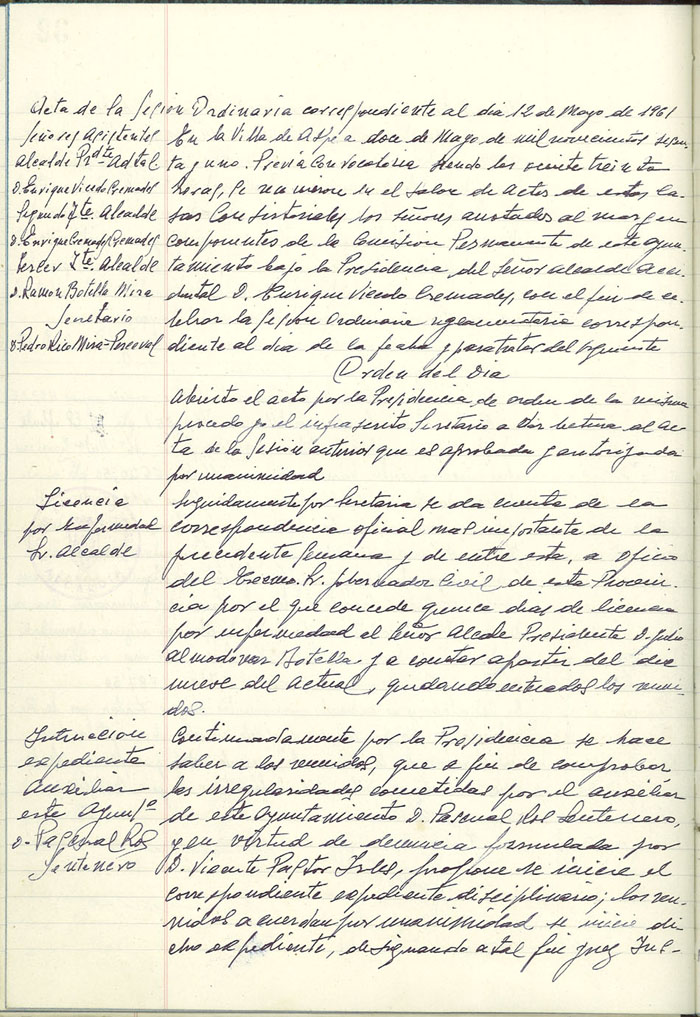 Acta de la Sesion Ordinaria correspondiente al dia 12 de Mayo de 1961
Señores Asistentes
Alcalde Prdte Adtal
D. Enrique Vicedo Cremades
Segundo Tte. Alcalde
D. Enrique Cremades Cremades
Tercer Tte. Alcalde
D. Ramon Botella Mira
Secretario
D. Pedro Rico Mira-Perceval
En la Villa de Aspe a doce de Mayo de mil novecientos sesen-
ta y uno. Previa Convocatoria siendo las veinte treinta
horas, se reunieron en el Salon de Actos de estas Ca-
sas Consistoriales los señores anotados al margen
componentes de la Comision Permanente de este Ayun-
tamiento bajo la Presidencia del Señor Alcalde Acci-
dental D. Enrique Vicedo Cremades, con el fin de ce-
lebrar la Sesion Ordinaria reglamentaria correspon-
diente al dia de la fecha y para tratar del siguiente
Orden del Dia
Abierto el acto por la Presidencia de orden de la misma
procedo yo el infrascrito Secretario a dar lectura al Ac-
ta de la Sesion anterior que es aprobada y autorizada
por unanimidad
Licencia
por enfermedad
Sr. Alcalde
Seguidamente por Secretaria se da cuenta de la
correspondencia oficial mas importante de la
precedente Semana y de entre esta, a oficio
del Excmo. Sr. Gobernador Civil de esta Provin-
cia por el que concede quince dias de licencia
por enfermedad al Señor Alcalde Presidente D. Julio
Almodovar Botella y a contar a partir del dia
nueve del actual, quedando enterados los reuni-
dos.
Intruccion
expediente
Auxiliar
este Ayunto
D. Pascual Ros
Sentenero
Continuadamente por la Presidencia se hace
saber a los reunidos, que a fin de comprobar
las irregularidades cometidas por el auxiliar
de este Ayuntamiento D. Pascual Ros Sentenero,
y en virtud de denuncia formulada por
D. Vicente Pastor, propone se inicie el
correspondiente expediente disciplinario; los reu-
nidos acuerdan por unanimidad se inicie di-
cho expediente, designando a tal fin Juez Ins-